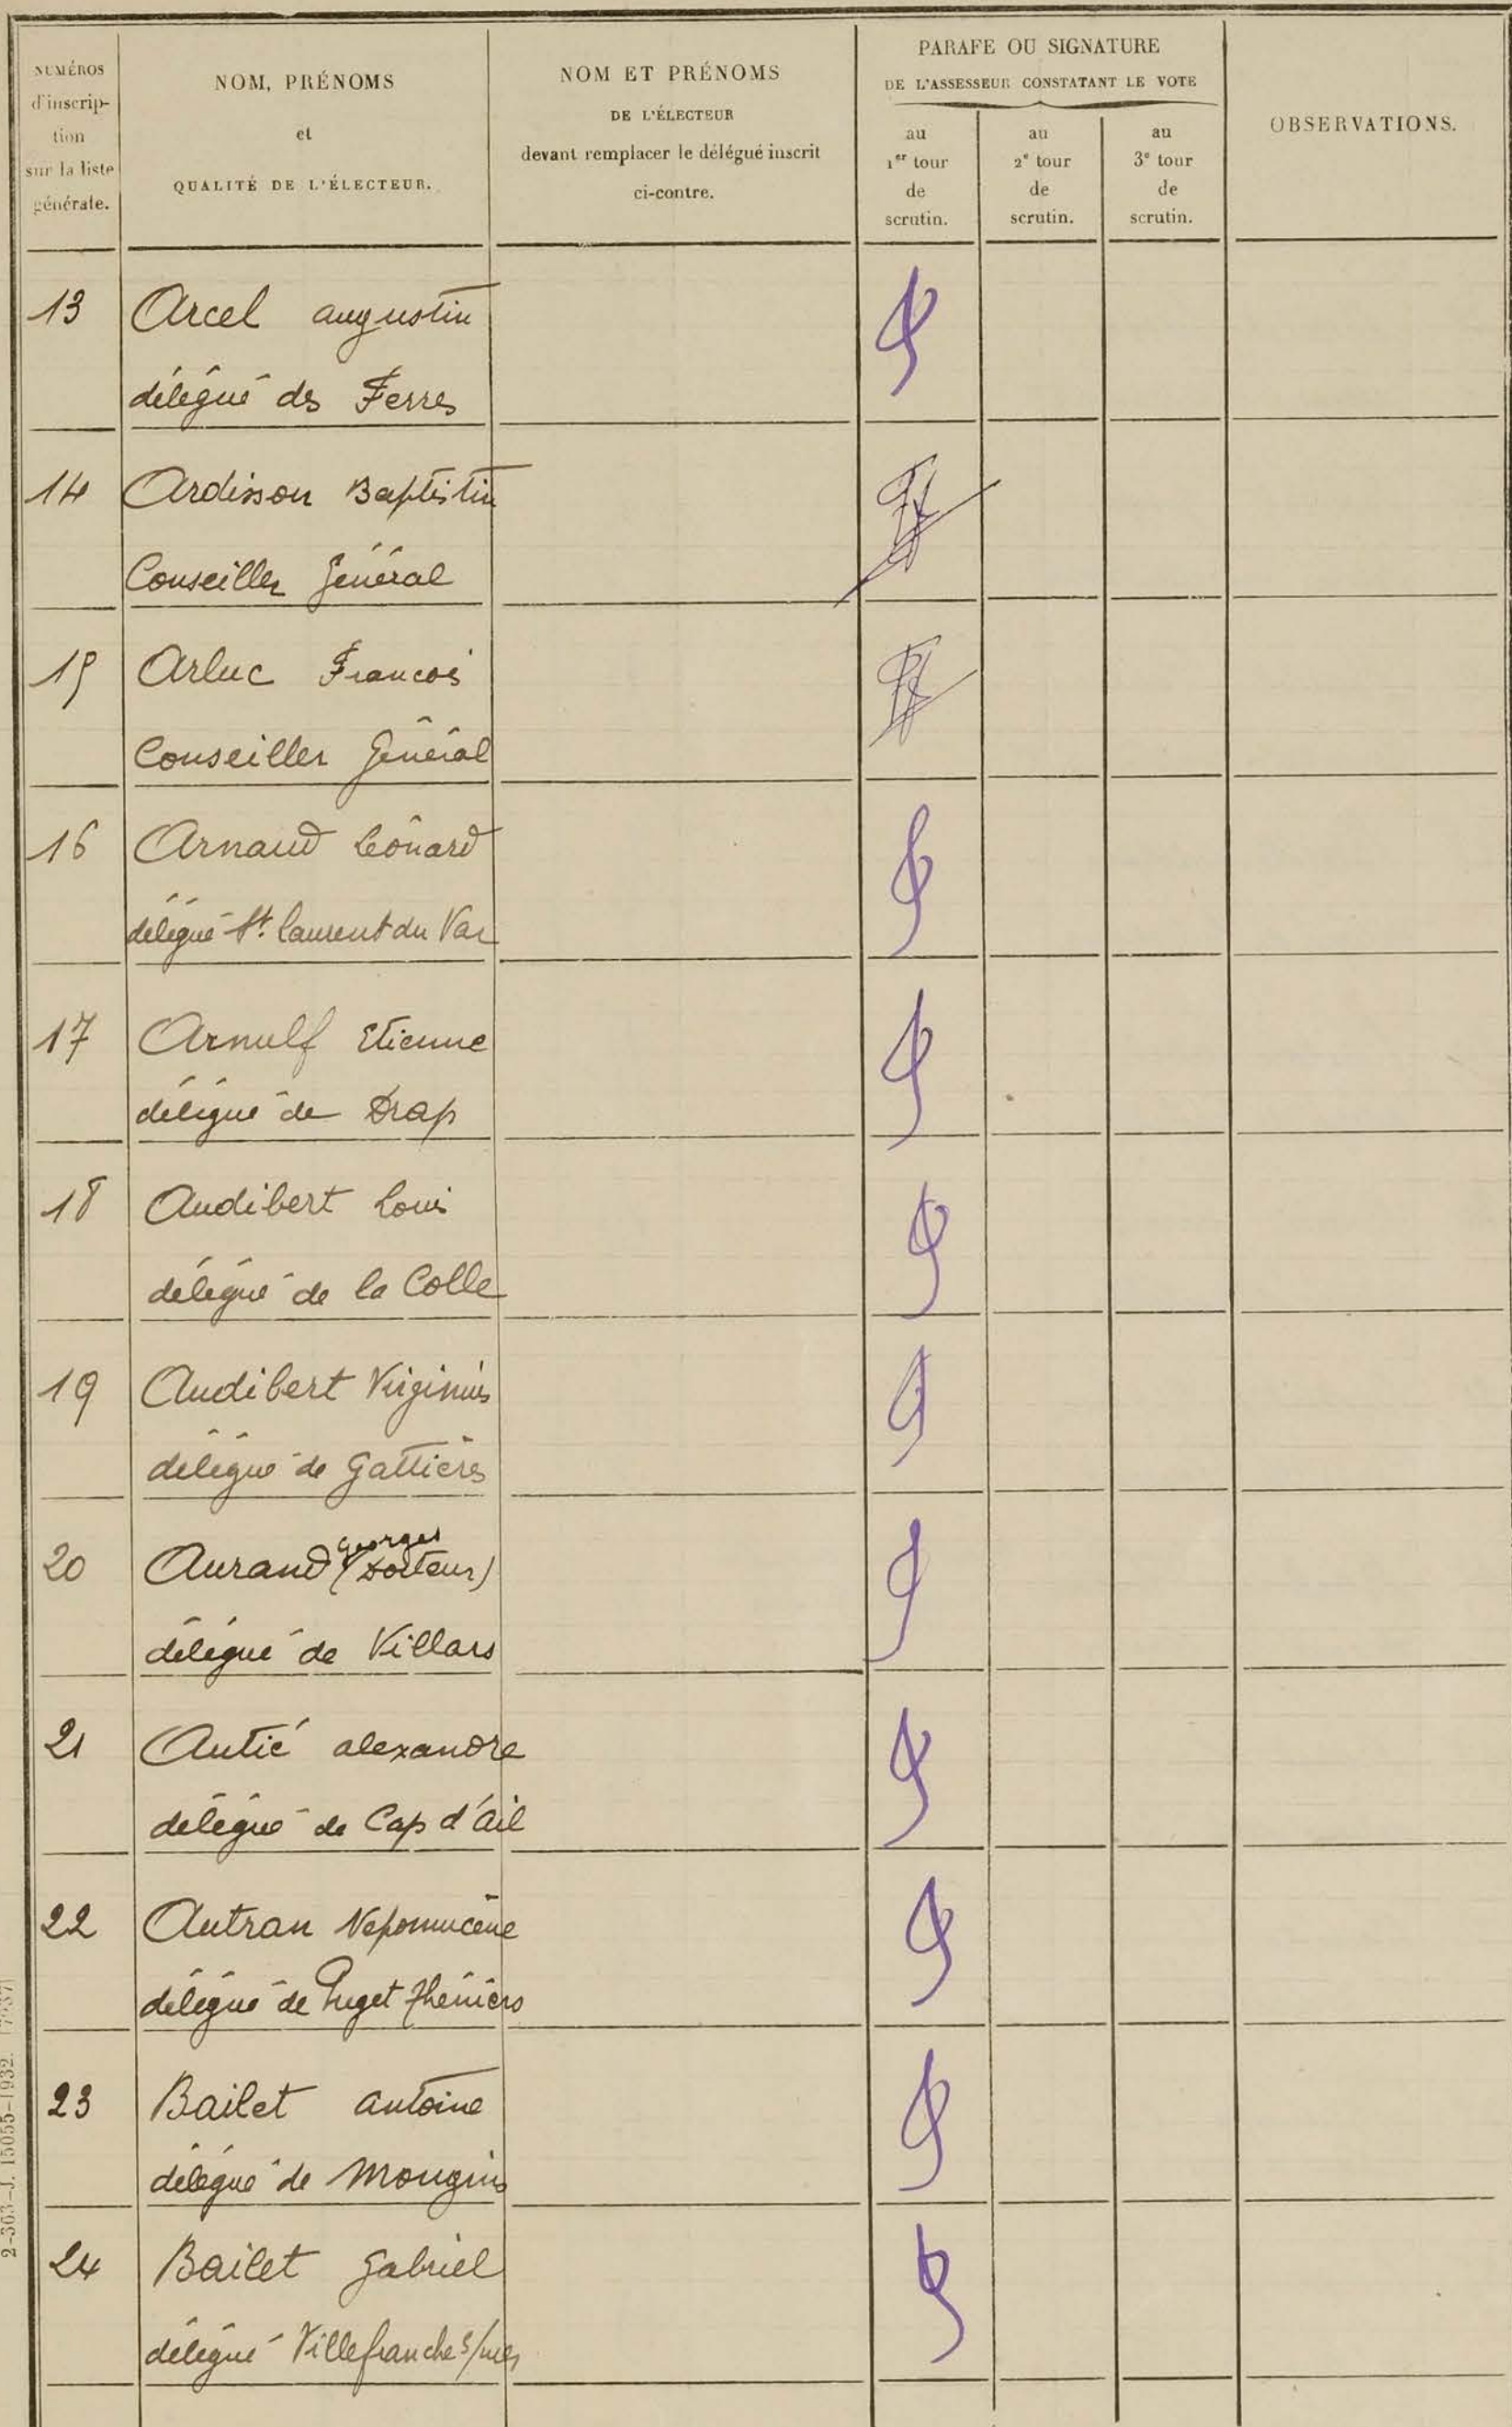 NUMÉROS
d'inscrip-
tion
sur la liste
générale.
NOM, PRÉNOMS
et
QUALITÉ DE L'ÉLECTEUR.
NOM ET PRÉNOMS
DE L'ÉLECTEUR
devant remplacer le délégué inscrit
ci-contre.
PARAFE OU SIGNATURE
DE L'ASSESSEUR CONSTATANT LE VOTE
au
1er tour
de
scrutin.
au
2e tour
de
scrutin.
au
3e tour
de
scrutin.
OBSERVATIONS.
13 Arcel augustin
délégué des Ferres
14 Ardisson Baptistin
Conseiller Général
15 Arluc François
Conseiller Général
16 Arnaud Léonard
délégué St. Laurent du Var
17 Arnulf Etienne
délégué de Drap
18 Audibert Louis
délégué de la Colle
19 Audibert Virginius
délégué de Gattières
20 Aurand Georges (Docteur)
délégué de Villars
21 Autié alexandre
délégué de Cap d'ail
22 Autran Népomucène
délégué de Puget Théniers
23 Bailet antoine
délégué de Mougins
24 Bailet Gabriel
délégué Villefranche s/mer
2-363-J. 15055-1932.